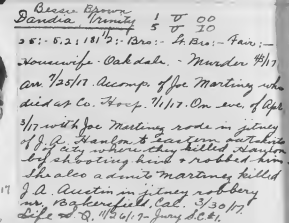 Bessie Brown
Dandia Trinity 1 U 00
5 U 10
25:- 5.2: 131 1/2:- Bro:- Lt. Bro:- Fair:-
Housewife - Oakdale. - Murder 4/3/17
Arr 7/25/17. Accomp. of Joe Martinez who
died at Co. Hosp. 7/1/17. On eve. of Apr
3/17 with Joe Martinez rode in jitney
of J. A. Hanlon to eastern outskirts
of city where they killed Hanlon
by shooting him & robbed him
She also admits Martinez killed
J. A. Austin in jitney robbery
nr. Bakersfield, Cal. 3/30/17.
Life S. Q. 11/26/17 - Jury S.C. #1.
17